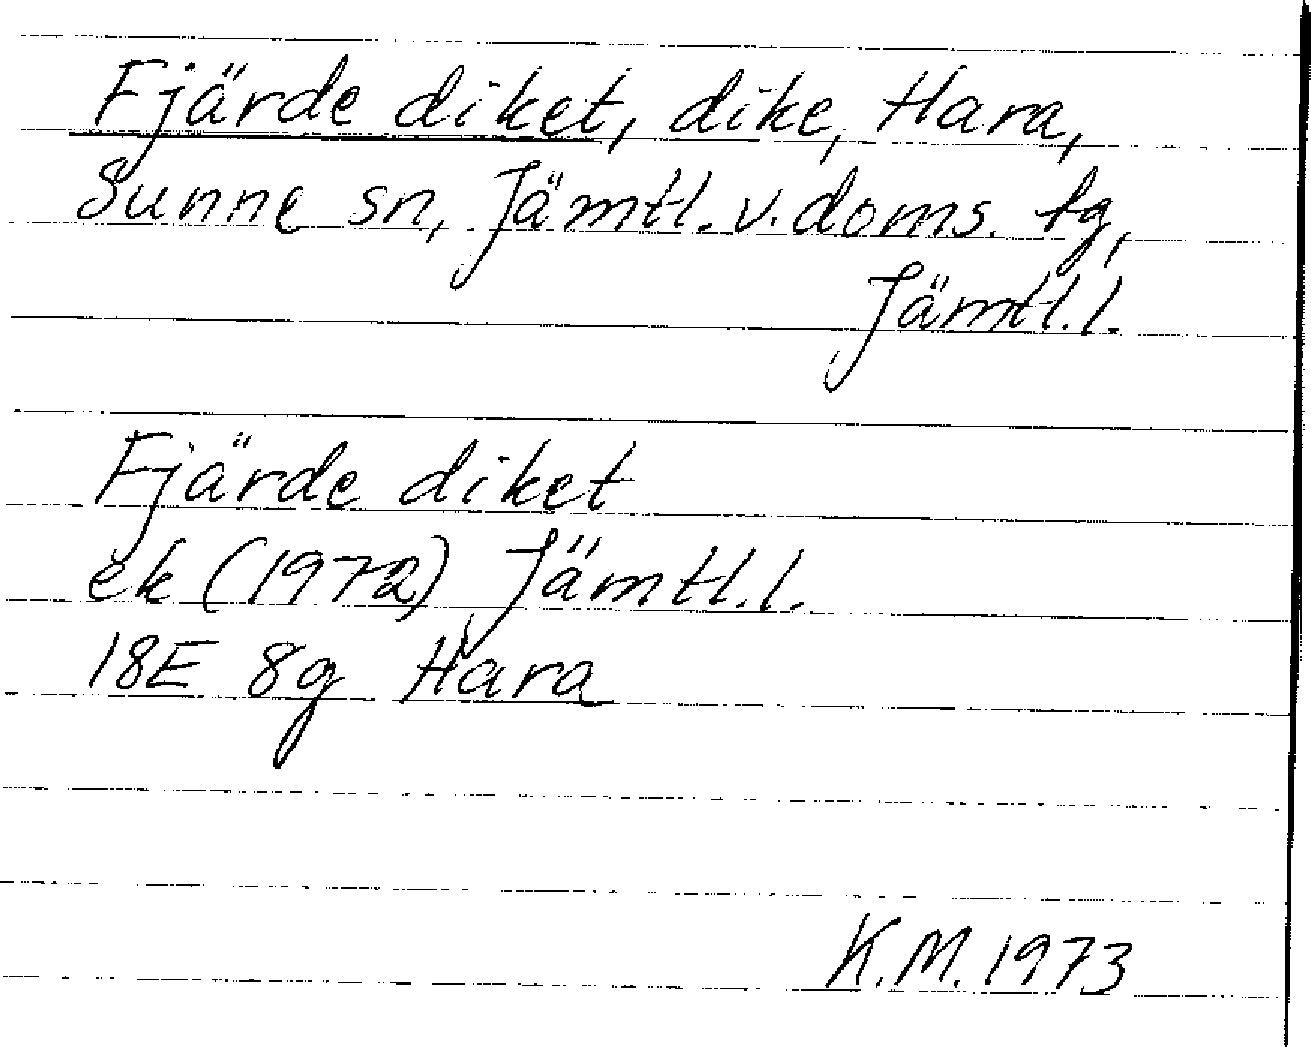 Fjärde diket, dike, Hara,
Sunne sn, Jämtl. v. doms. tg,
Jämtl. l.
Fjärde diket
ek (1972) Jämtl. l.
18E 8g Hara
K.M. 1973